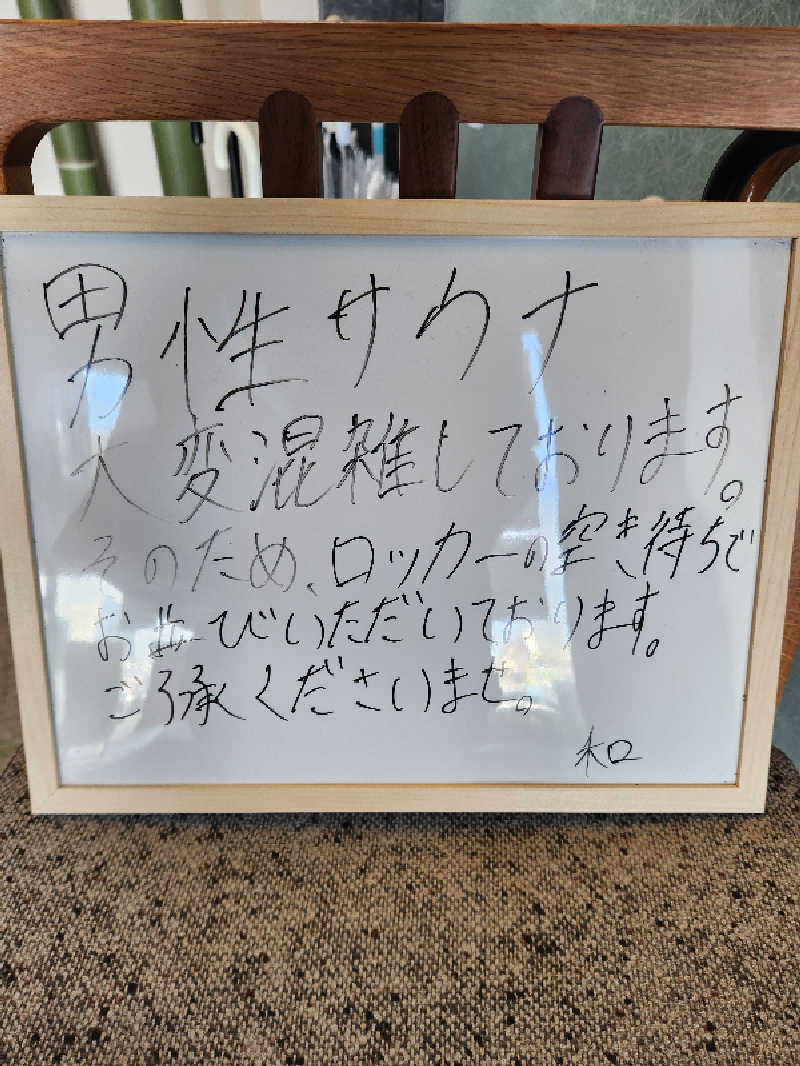 男性サウナ
大変混雑しております。
そのため、ロッカーの空き待ちで
お並びいただいております。
ご了承くださいませ。
和